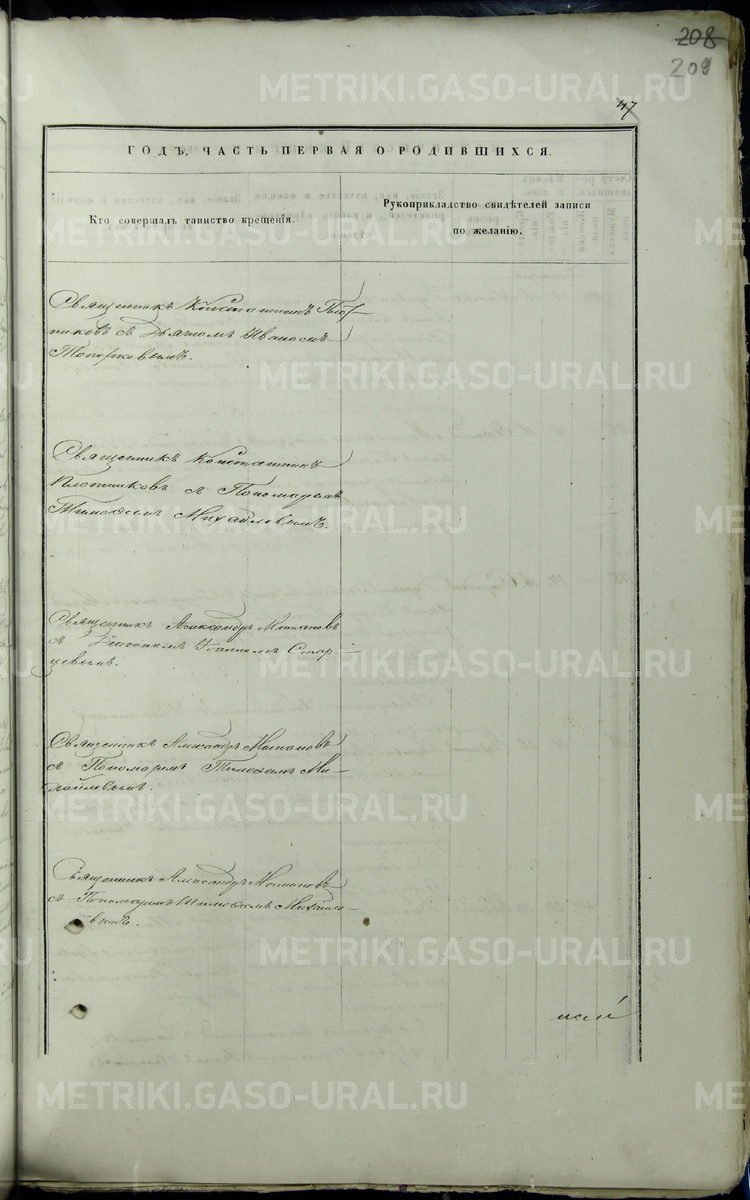 208
209
47
ГОДЪ, ЧАСТЬ ПЕРВАЯ О РОДИВШИХСЯ.
Кто совершалъ таинство крещенія.
Рукоприкладство свидѣтелей записи
по желанію.
Священникъ Константинъ Плот-
никовъ съ Дьячкомъ Иваномъ
Топорковымъ.
Священникъ Константинъ
Плотниковъ съ Пономаремъ
Тимофеемъ Михайловымъ.
Священникъ Александръ
съ Стар-
цевымъ.
Священникъ Александръ
съ Пономаремъ Тимофеемъ Ми-
хайловымъ.
Священникъ Александръ
съ Пономаремъ Тимофеемъ Михайло-
вымъ.
METRIKI.GASO-URAL.RU
METRIKI.GASO-URAL.RU
METRIKI.GASO-URAL.RU
METRIKI.GASO-URAL.RU
METRIKI.GASO-URAL.RU
METRIKI.GASO-URAL.RU
METRIKI.GASO-URAL.RU
METRIKI.GASO-URAL.RU